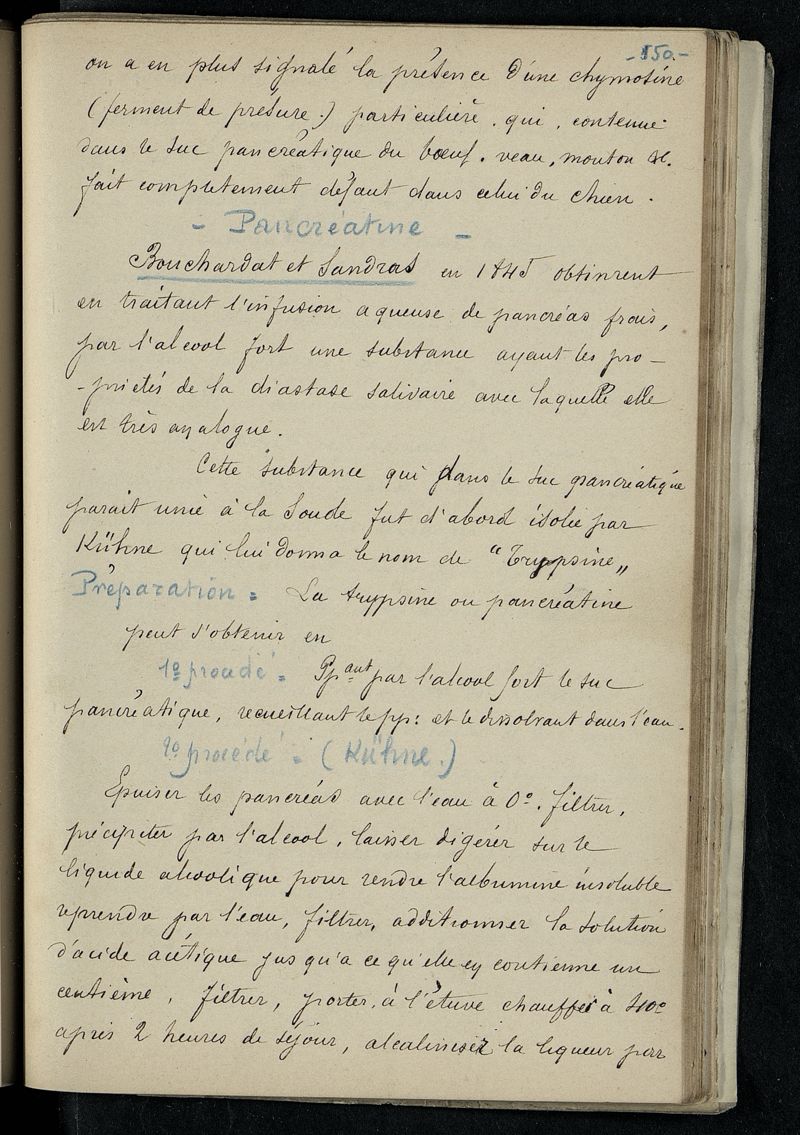 -150-
on a en plus signalé la présence d'une chymosine
(ferment de présure.) particulière. qui, contenue
dans le suc pancréatique du bœuf. veau, mouton &.
fait complètement défaut dans celui du chien.
- Pancréatine -
Bouchardat et Sandras en 1845 obtinrent
en traitant l'infusion aqueuse de pancréas frais,
par l'alcool fort une substance ayant les pro-
-priétés de la diastase salivaire avec laquelle elle
est très analogue.
Cette substance qui dans le suc pancréatique
parait unie à la Soude fut d'abord isolée par
Kühne qui lui donna le nom de "Trypsine„
Préparation = La trypsine ou pancréatine
peut s'obtenir en
1º procédé = Ppant par l'alcool fort le suc
pancréatique, recueillant le pp: et le dissolvant dans l'eau.
2º procédé = (Kühne.)
Epuiser les pancréas avec l'eau à 0º. filtrer,
précipiter par l'alcool, laisser digérer sur le
liquide alcoolique pour rendre l'albumine insoluble
reprendre par l'eau, filtrer, additionner la solution
d'acide acétique jusqu'a ce qu'elle en contienne un
centième, filtrer, porter à l'étuve chauffée à 40º
après 2 heures de séjour, alcalinisez la liqueur par